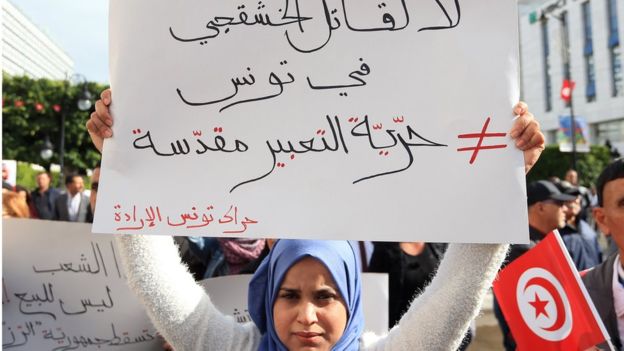 لا لقاتل الخشقجي
في تونس
# حرّيّة التعبير مقدّسة
حراك تونس الإرادة
الشعب
ليس للبيع
تسقط جمهوريّة